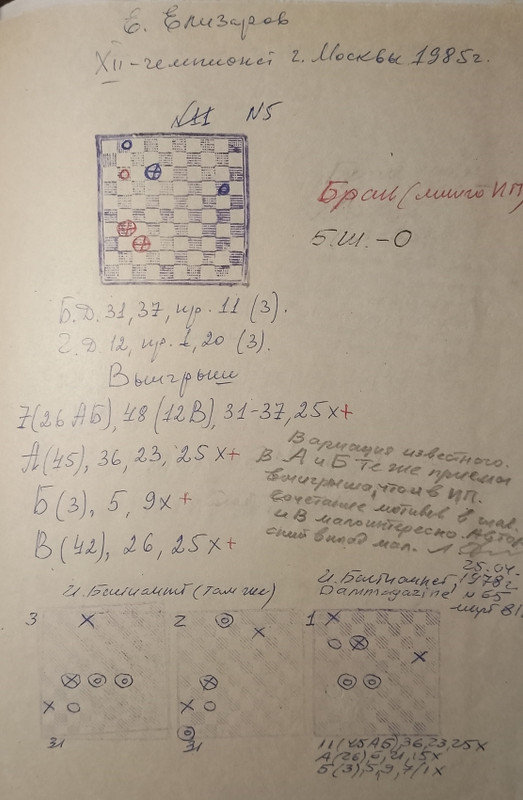 Е. Елизаров
XII-чемпионат г. Москвы 1985г.
N11 N5
Брак (много ИП)
Б.Ш. -0
Б.Д. 31, 37, пр. 11 (3).
Ч.Д. 12, пр. 1, 20 (3).
Выигрыш
7(26АБ), 48(12В), 31-37, 25x+
А(45), 36, 23, 25x+
Б(3), 5, 9x+
В(42), 26, 25x+
Вариация известного.
В А и Б те же приемы
выигрыша, что и в ИП.
сочетание мотивов в глав.
и В малоинтересно. Автор-
ский вклад мал.
25.04.
И. Бастианнет (там же)
И. Бастианнет,
1978г.
Dammagazine N65
март 81
3
2
1
31
31
11(45АБ), 36, 23, 25x
А(26), 6, 21, 15x
Б(3), 5, 9, 7/1x